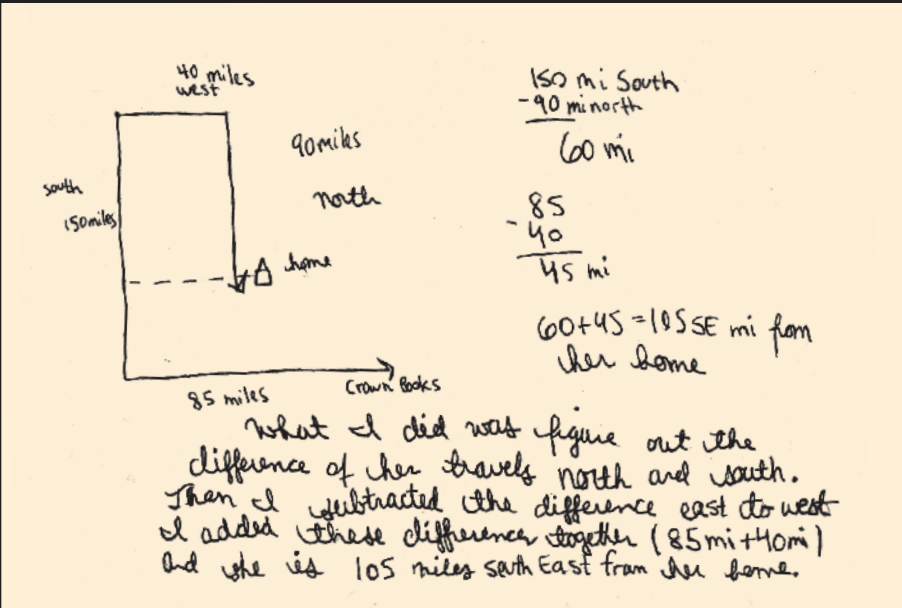 40 miles
west
90 miles
north
south
150 miles
home
85 miles
Crown Books
150 mi South
- 90 mi north
60 mi
85
- 40
45 mi
60+45 = 105 SE mi from
her home
What I did was figure out the
difference of her travels north and south.
Than I subtracted the difference east to west
I added these differences together (85mi+40mi)
And she is 105 miles south East from her home.